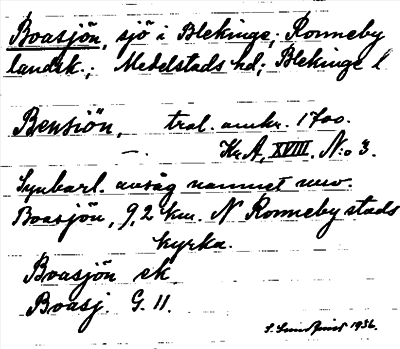 Boasjön, sjö i Blekinge, Ronneby
landsk.; Medelstads hd; Blekinge l
Bensiön, tral. omkr. 1700.
—. Kr.A, XVIII. N:o 3.
Synbarl. avsåg namnet nuv.
Boasjön, 9,2 km. N Ronneby stads
kyrka.
Boasjön ek
Boasj. G. 11.
1936.